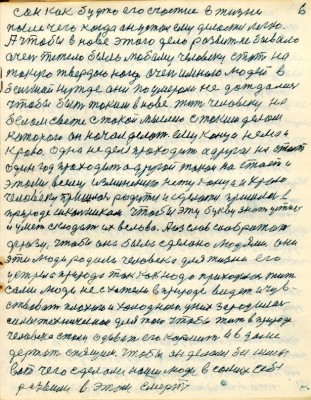 6
сам как будто его счастие в жизни
после чего когда он устал ему делается легко.
А чтобы в нове этого дела развитие бывало
очень тяжело было любому человеку стоять на
такую твердою ногу очень много людей в
великой нужде они поумерли не дождались
чтобы быть таким в нове. жить человеку на
белом свете с такой мыслию с таким делом
которого он начал делать ему конца нема и
краю. одна неделя проходит а другая на
один год проходит а другой такой на
этому всему изменения нету конца и краю
человеку пришлось родиться и сделаться пришлось в
природе школьником чтобы эту букву знать
и уметь складать их в слова. А из слов
фразу, чтобы она была сделана людьми они
эти люди родили человека для жизни его
встретила природа так как надо приходилось жить
сами люди не схотели в природе видеть и чув-
ствовать плохого и холодного у них зародилась
сила техническая для того чтобы жить в природе
человека стали одевать его кормить и в доме
держать спящим чтобы он делом занимал
вот чего сделали наши люди в самих себе
развили в этом смерть